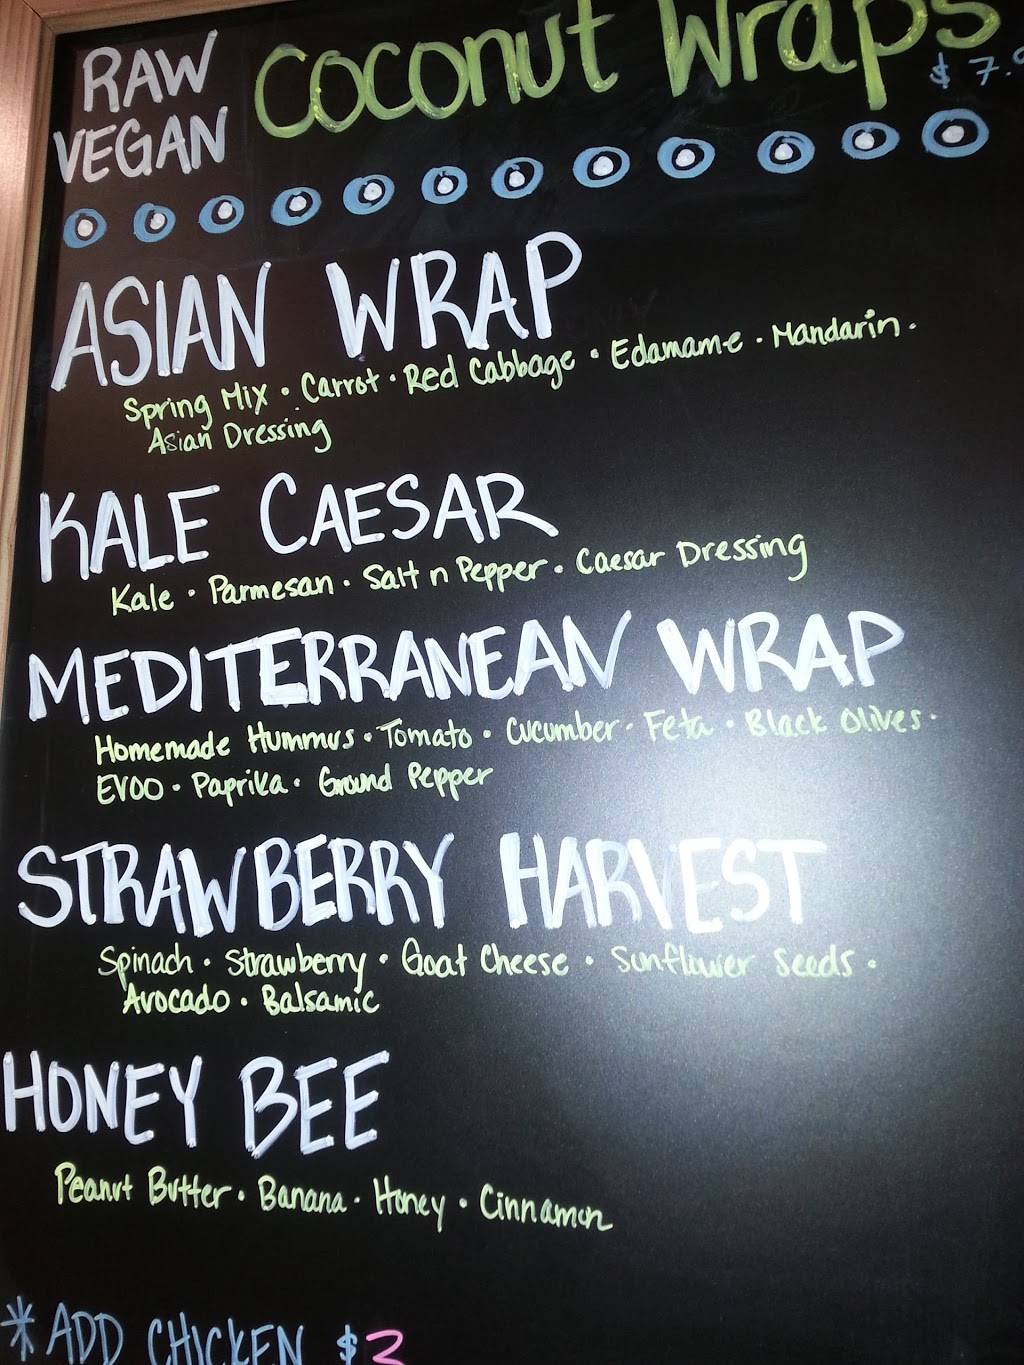 RAW
VEGAN
Coconut Wraps
$7.
ASIAN WRAP
Spring Mix • Carrot • Red Cabbage • Edamame • Mandarin •
Asian Dressing
KALE CAESAR
Kale • Parmesan • Salt n Pepper • Caesar Dressing
MEDITERRANEAN WRAP
Homemade Hummus • Tomato • Cucumber • Feta • Black Olives •
EVOO • Paprika • Ground Pepper
STRAWBERRY HARVEST
Spinach • Strawberry • Goat Cheese • Sunflower Seeds •
Avocado • Balsamic
HONEY BEE
Peanut Butter • Banana • Honey • Cinnamon
*ADD CHICKEN $